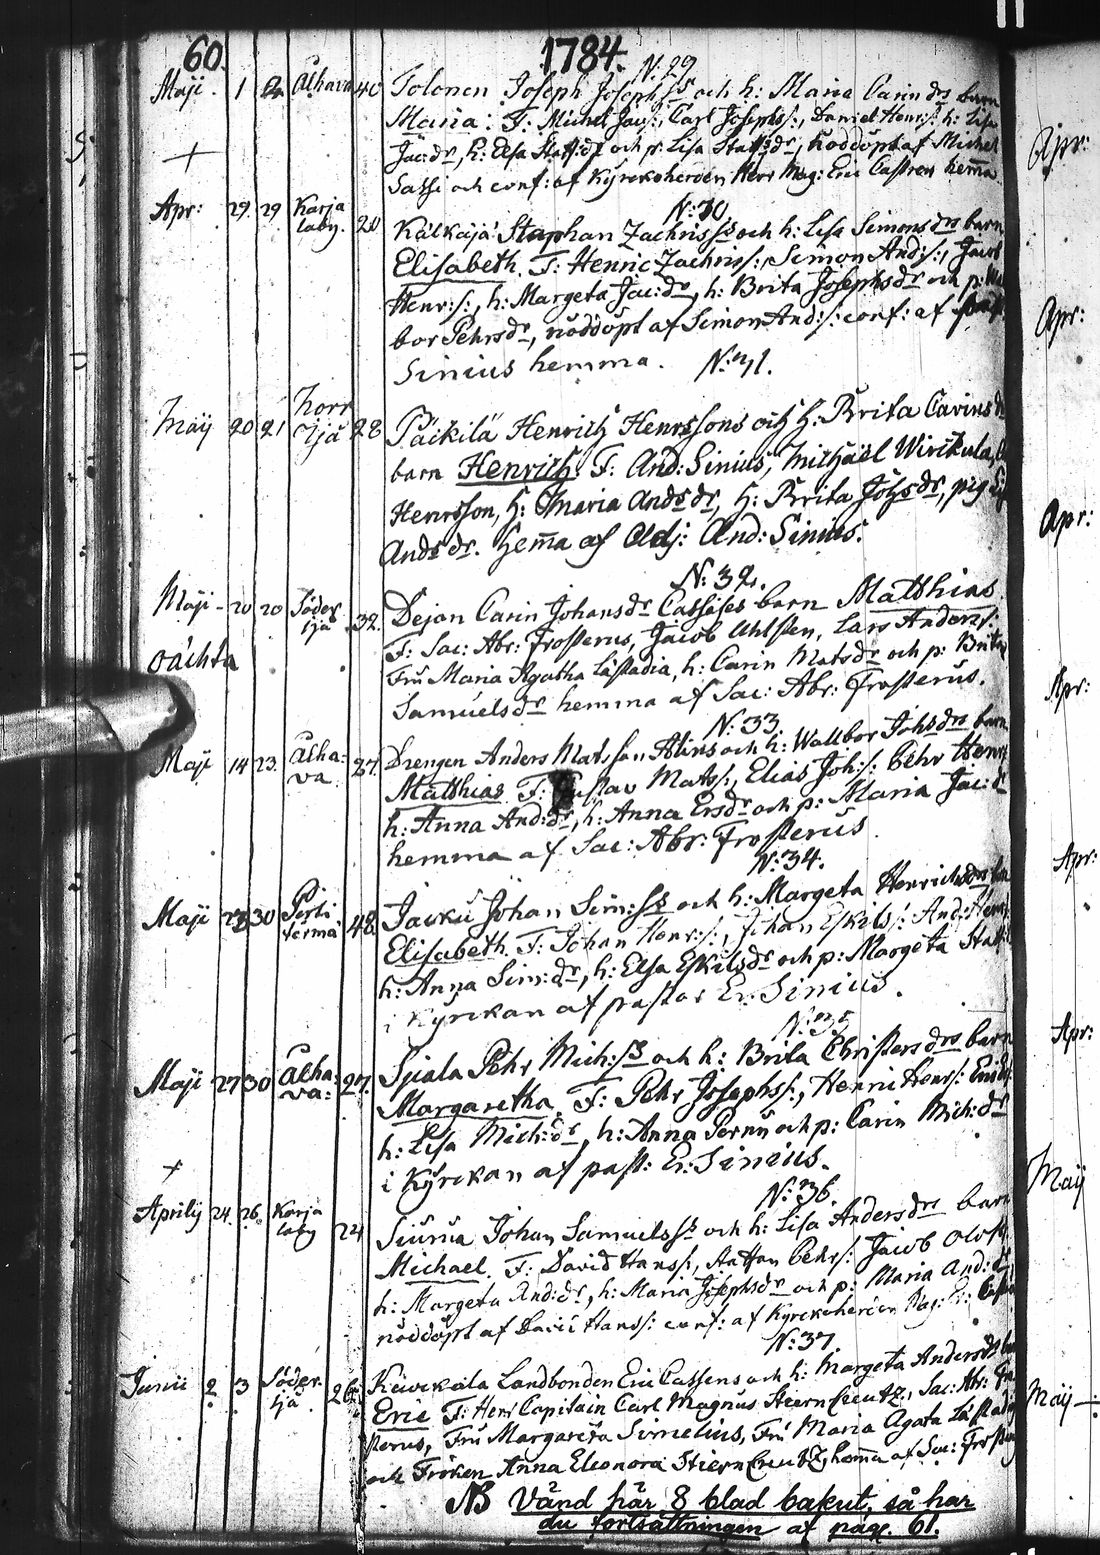 60. 1784.
N: 29
Maji. 1 2 Alhava 40 Tolonen Joseph Josephss och h: Maria Carin drs barn
Maria. F: Michel Jac/:, Carl Josephs/:, Daniel Henr/: h: Lisa
Jac:dr, h: Elsa Staff:dr och p: Lisa Staffsdr, nöddöpt af Michel
Sassi och conf: af Kyrckoherden Herr Mag: Eric Castren hemma.
N: 30
Apr: 29 29 Karja laby. 20 Kälkäjä Staphan Zachrisss och h: Lisa Simonsdrs barn
Elisabeth. F: Henric Zachriss/:, Simon And:/:, Jacob
Henr:/:, h: Margeta Jac:dr, h: Brita Josephsdr och p:
bor Pehrsdr, nöddöpt af Simon And:/: conf: af
Sinius hemma.
N: 31.
Maij 20 21 Norr Ijå 28 Päikilä Henrich Henrssons och h: Brita Carins
barn Henrich. F: And: Sinius, Michaël Wirikula,
Henrsson, h: Maria Andsdr, h: Brita Johsdr, pig
Andsdr. hemma af Adj: And: Sinius.
N: 32.
Maji 20 20 Söder ijå 32. Dejan Carin Johansdr Cassäses barn Matthias
oächta F: Sac: Abr: Frosterus, Jacob Ahlsten, Lars Anders/:
Fru Maria Agatha Lästadia, h: Carin Matsdr och p: Brita
Samuelsdr hemma af Sac: Abr: Frosterus.
N: 33
Maji 14 23. Alha-va 27. Drengen Anders Matsson Alins och h: Wallbor Johsdrs barn
Matthias F: Gustav Mats/:, Elias Joh:/: Pehr Henr
h: Anna And:dr, h: Anna Ersdr och p: Maria Jac:d
hemma af Sac: Abr: Frosterus.
N: 34.
Maji 30 48 Jacku Johan Sim:ss och h: Margeta Henricsdrs
Elisabeth. F: Johan Henr:/:, Johan Eskils/: And: Henr
h: Anna Sim:dr, h: Elsa Eskilsdr och p: Margeta Staff
i Kyrckan af pastor Er: Sinius.
N: 35
Maji 27 30 Alha-va: 27. Sjiala Pehr Mich:ss och h: Brita Christersdrs barn
Margaretha. F: Pehr Josephs/:, Henric Henr/:
h: Lisa Mich:dr, h: Anna Pernu och p: Carin Mich:dr
i Kyrckan af past: Er: Sinius.
N: 36.
Aprilij 24. 26. Karja laby 24 Siurua Johan Samuelsss och h: Lisa Andersdrs barn
Michael. F: David Hans/:, Pehr/: Jacob Olofs/:
h: Margeta And:dr, h: Maria Josephsdr och p: Maria And:
nöddöpt af David Hans/: conf: af Kyrckoherden Mag: Er:
N: 37.
Junii 2 3 Söder ijå 26. Landbonden Eric Cassens och h: Margeta Andersdrs
Eric F: Herr Capitain Carl Magnus Stierncreutz, Sac: Abr: Fro
sterus, Fru Margareta Simelius, Fru Maria Agata Lästadia
och Fröken Anna Eleonora Stierncreutz, hemma af Sac: Frosterus
NB Vänd här 8 blad bakut, så har
du fortsättningen af pag. 61.
Apr:
Apr:
Apr:
Apr:
Apr:
Apr:
Maij
Maij